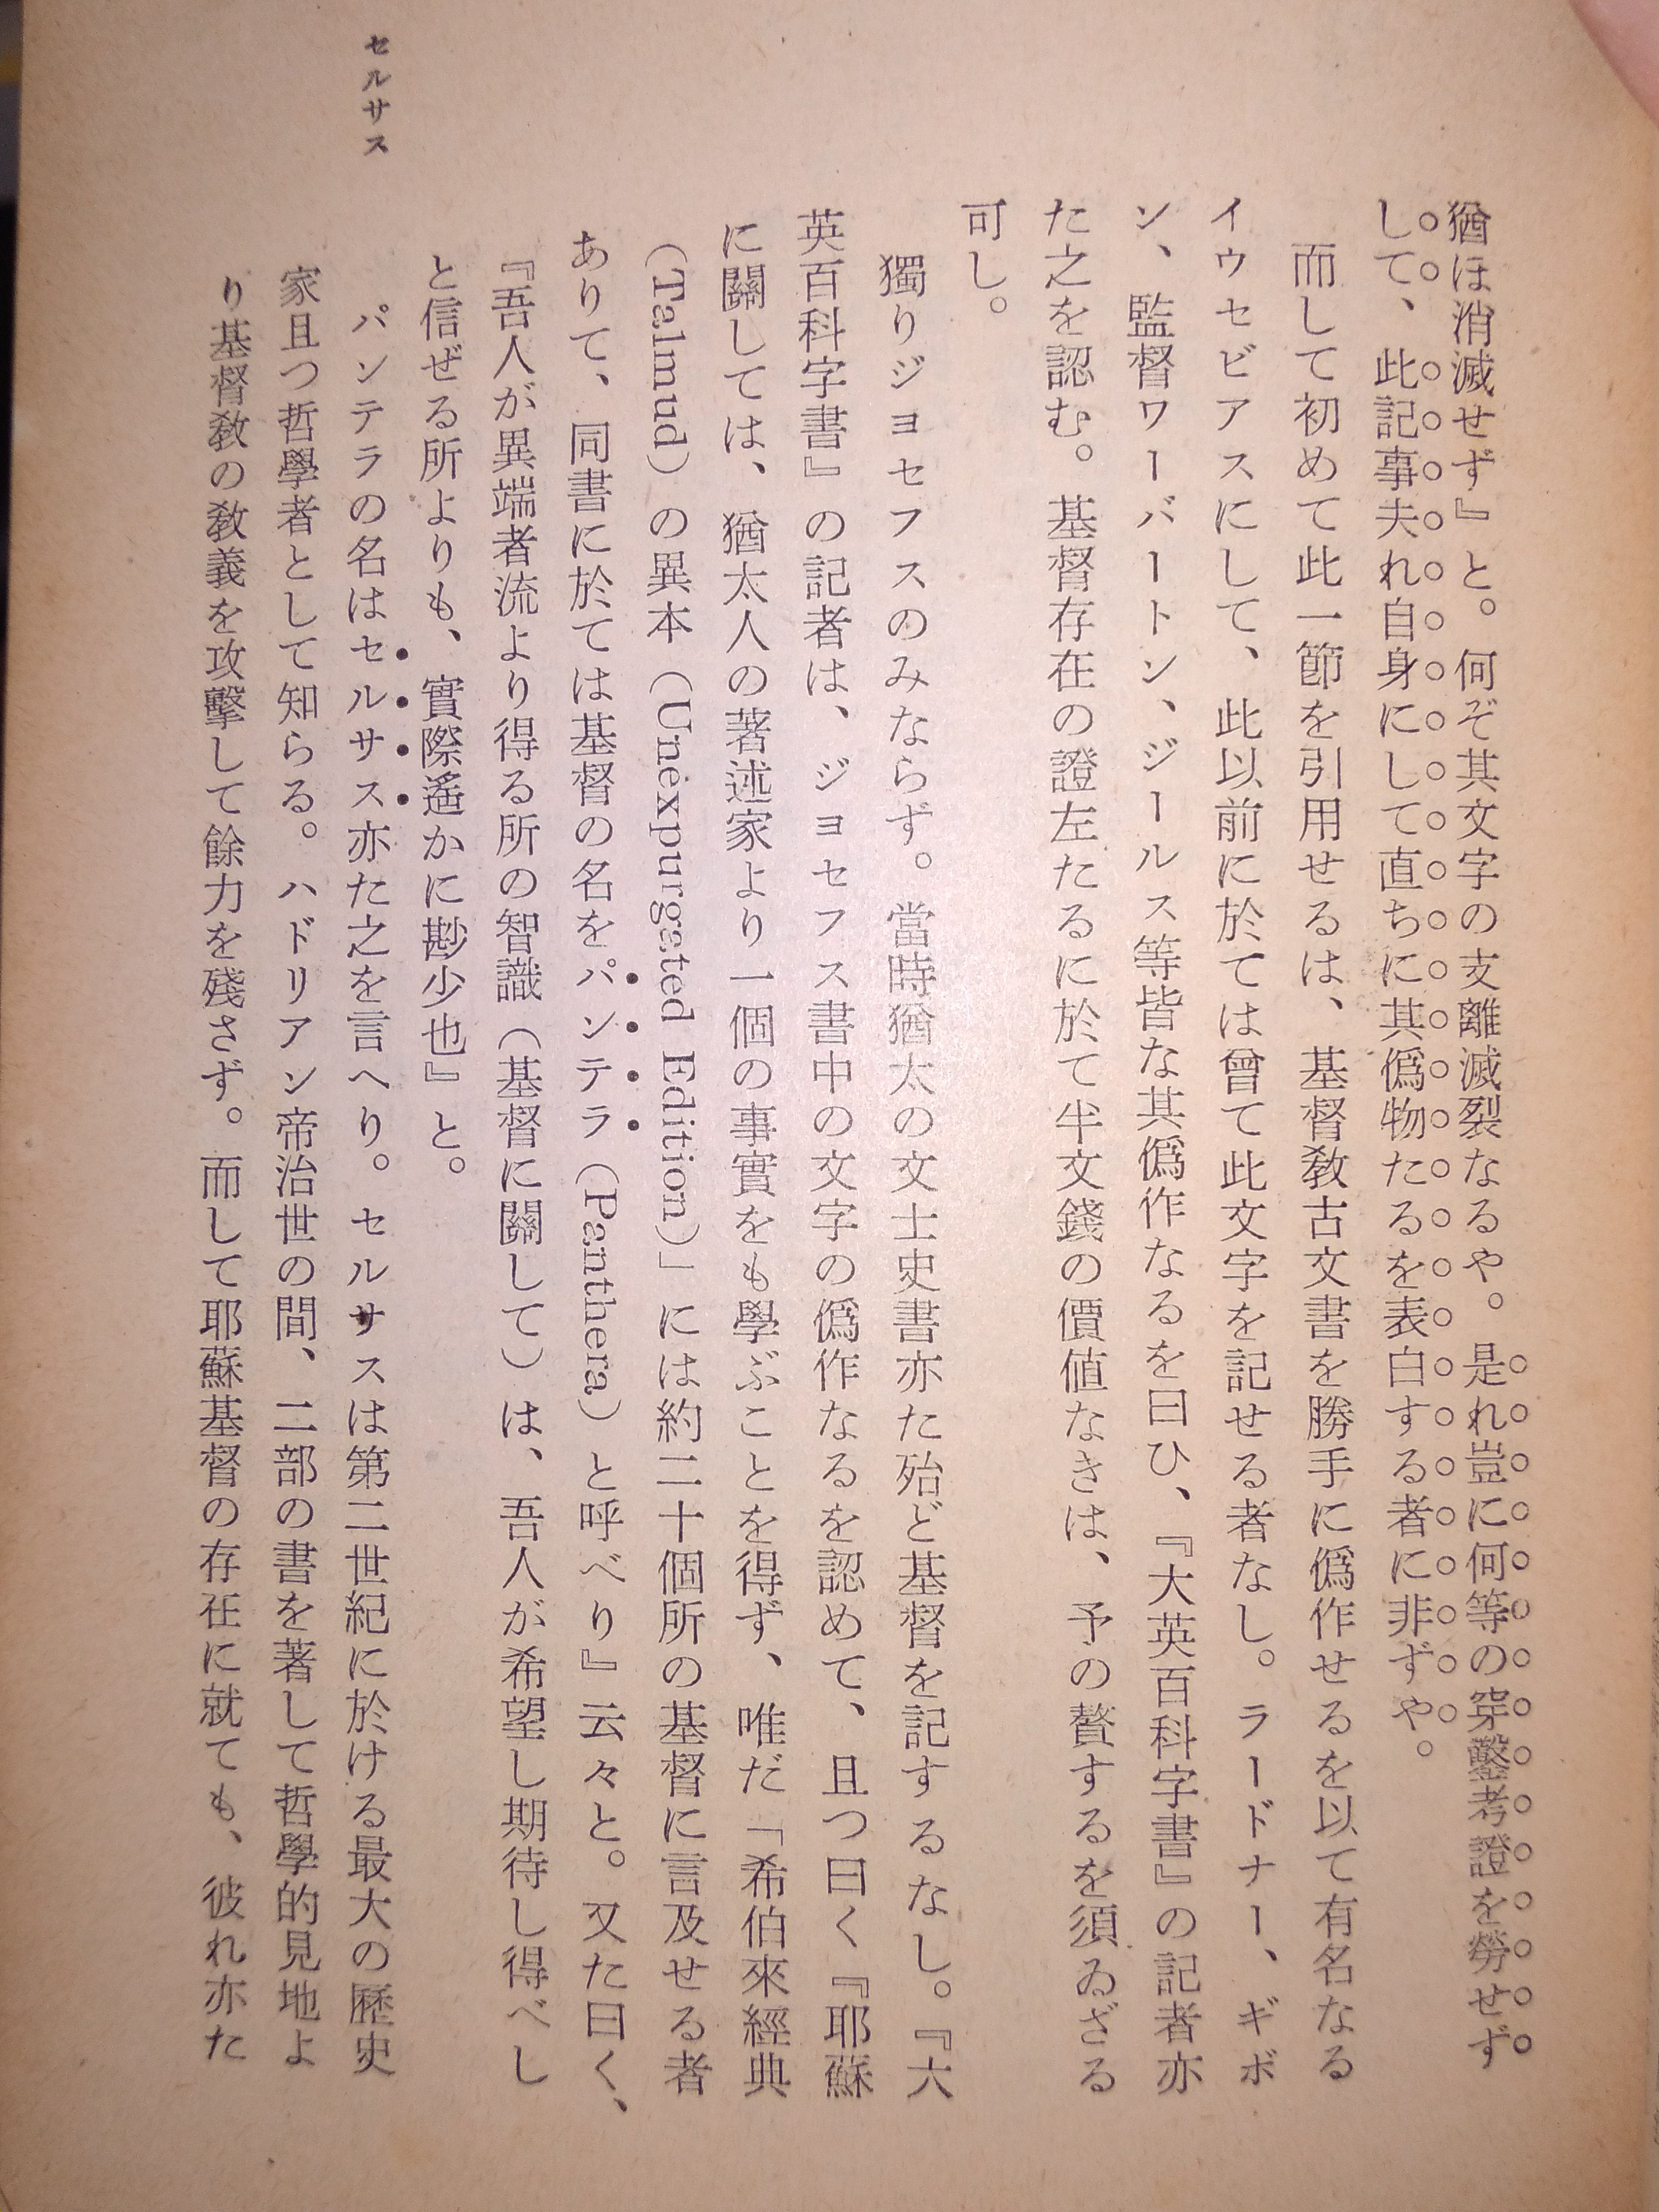 猶ほ消滅せず』と。何ぞ其文字の支離滅裂なるや。是れ豈に何等の穿鑿考證を勞せず
して、此記事夫れ自身にして直ちに其僞物たるを表白する者に非ずや。
而して初めて此一節を引用せるは、基督敎古文書を勝手に僞作せるを以て有名なる
イウセビアスにして、此以前に於ては曾て此文字を記せる者なし。ラードナー、ギボ
ン、監督ワーバートン、ジールス等皆な其僞作なるを曰ひ、『大英百科字書』の記者亦
た之を認む。基督存在の證左たるに於て半文錢の價値なきは、予の贅するを須ゐざる
可し。
獨りジョセフスのみならず。當時猶太の文士史書亦た殆ど基督を記するなし。『大
英百科字書』の記者は、ジョセフス書中の文字の僞作なるを認めて、且つ曰く『耶蘇
に關しては、猶太人の著述家より一個の事實をも學ぶことを得ず、唯だ「希伯來經典
(Talmud)の異本(Unexpurgated Edition)」には約二十個所の基督に言及せる者
ありて、同書に於ては基督の名をパンテラ(Panthera)と呼べり』云々と。又た曰く、
『吾人が異端者流より得る所の智識(基督に關して)は、吾人が希望し期待し得べし
と信ぜる所よりも、實際遙かに尠少也』と。
セルサス
パンテラの名はセルサス亦た之を言へり。セルサスは第二世紀に於ける最大の歷史
家且つ哲學者として知らる。ハドリアン帝治世の間、二部の書を著して哲學的見地よ
り基督敎の敎義を攻擊して餘力を殘さず。而して耶蘇基督の存在に就ても、彼れ亦た